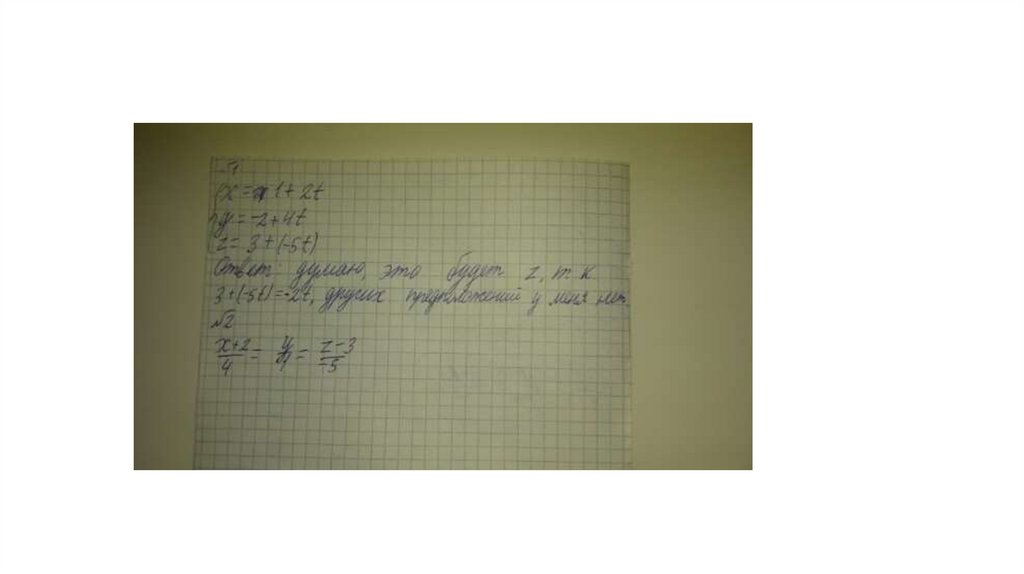 №1
x = 1 + 2t
y = -2 + 4t
z = 3 + (-5t)
Ответ: думаю, это будет z, т к
3 + (-5t) = -2t, других предположений у меня нет.
№2
x+2/4 = y/4 = z-3/-5